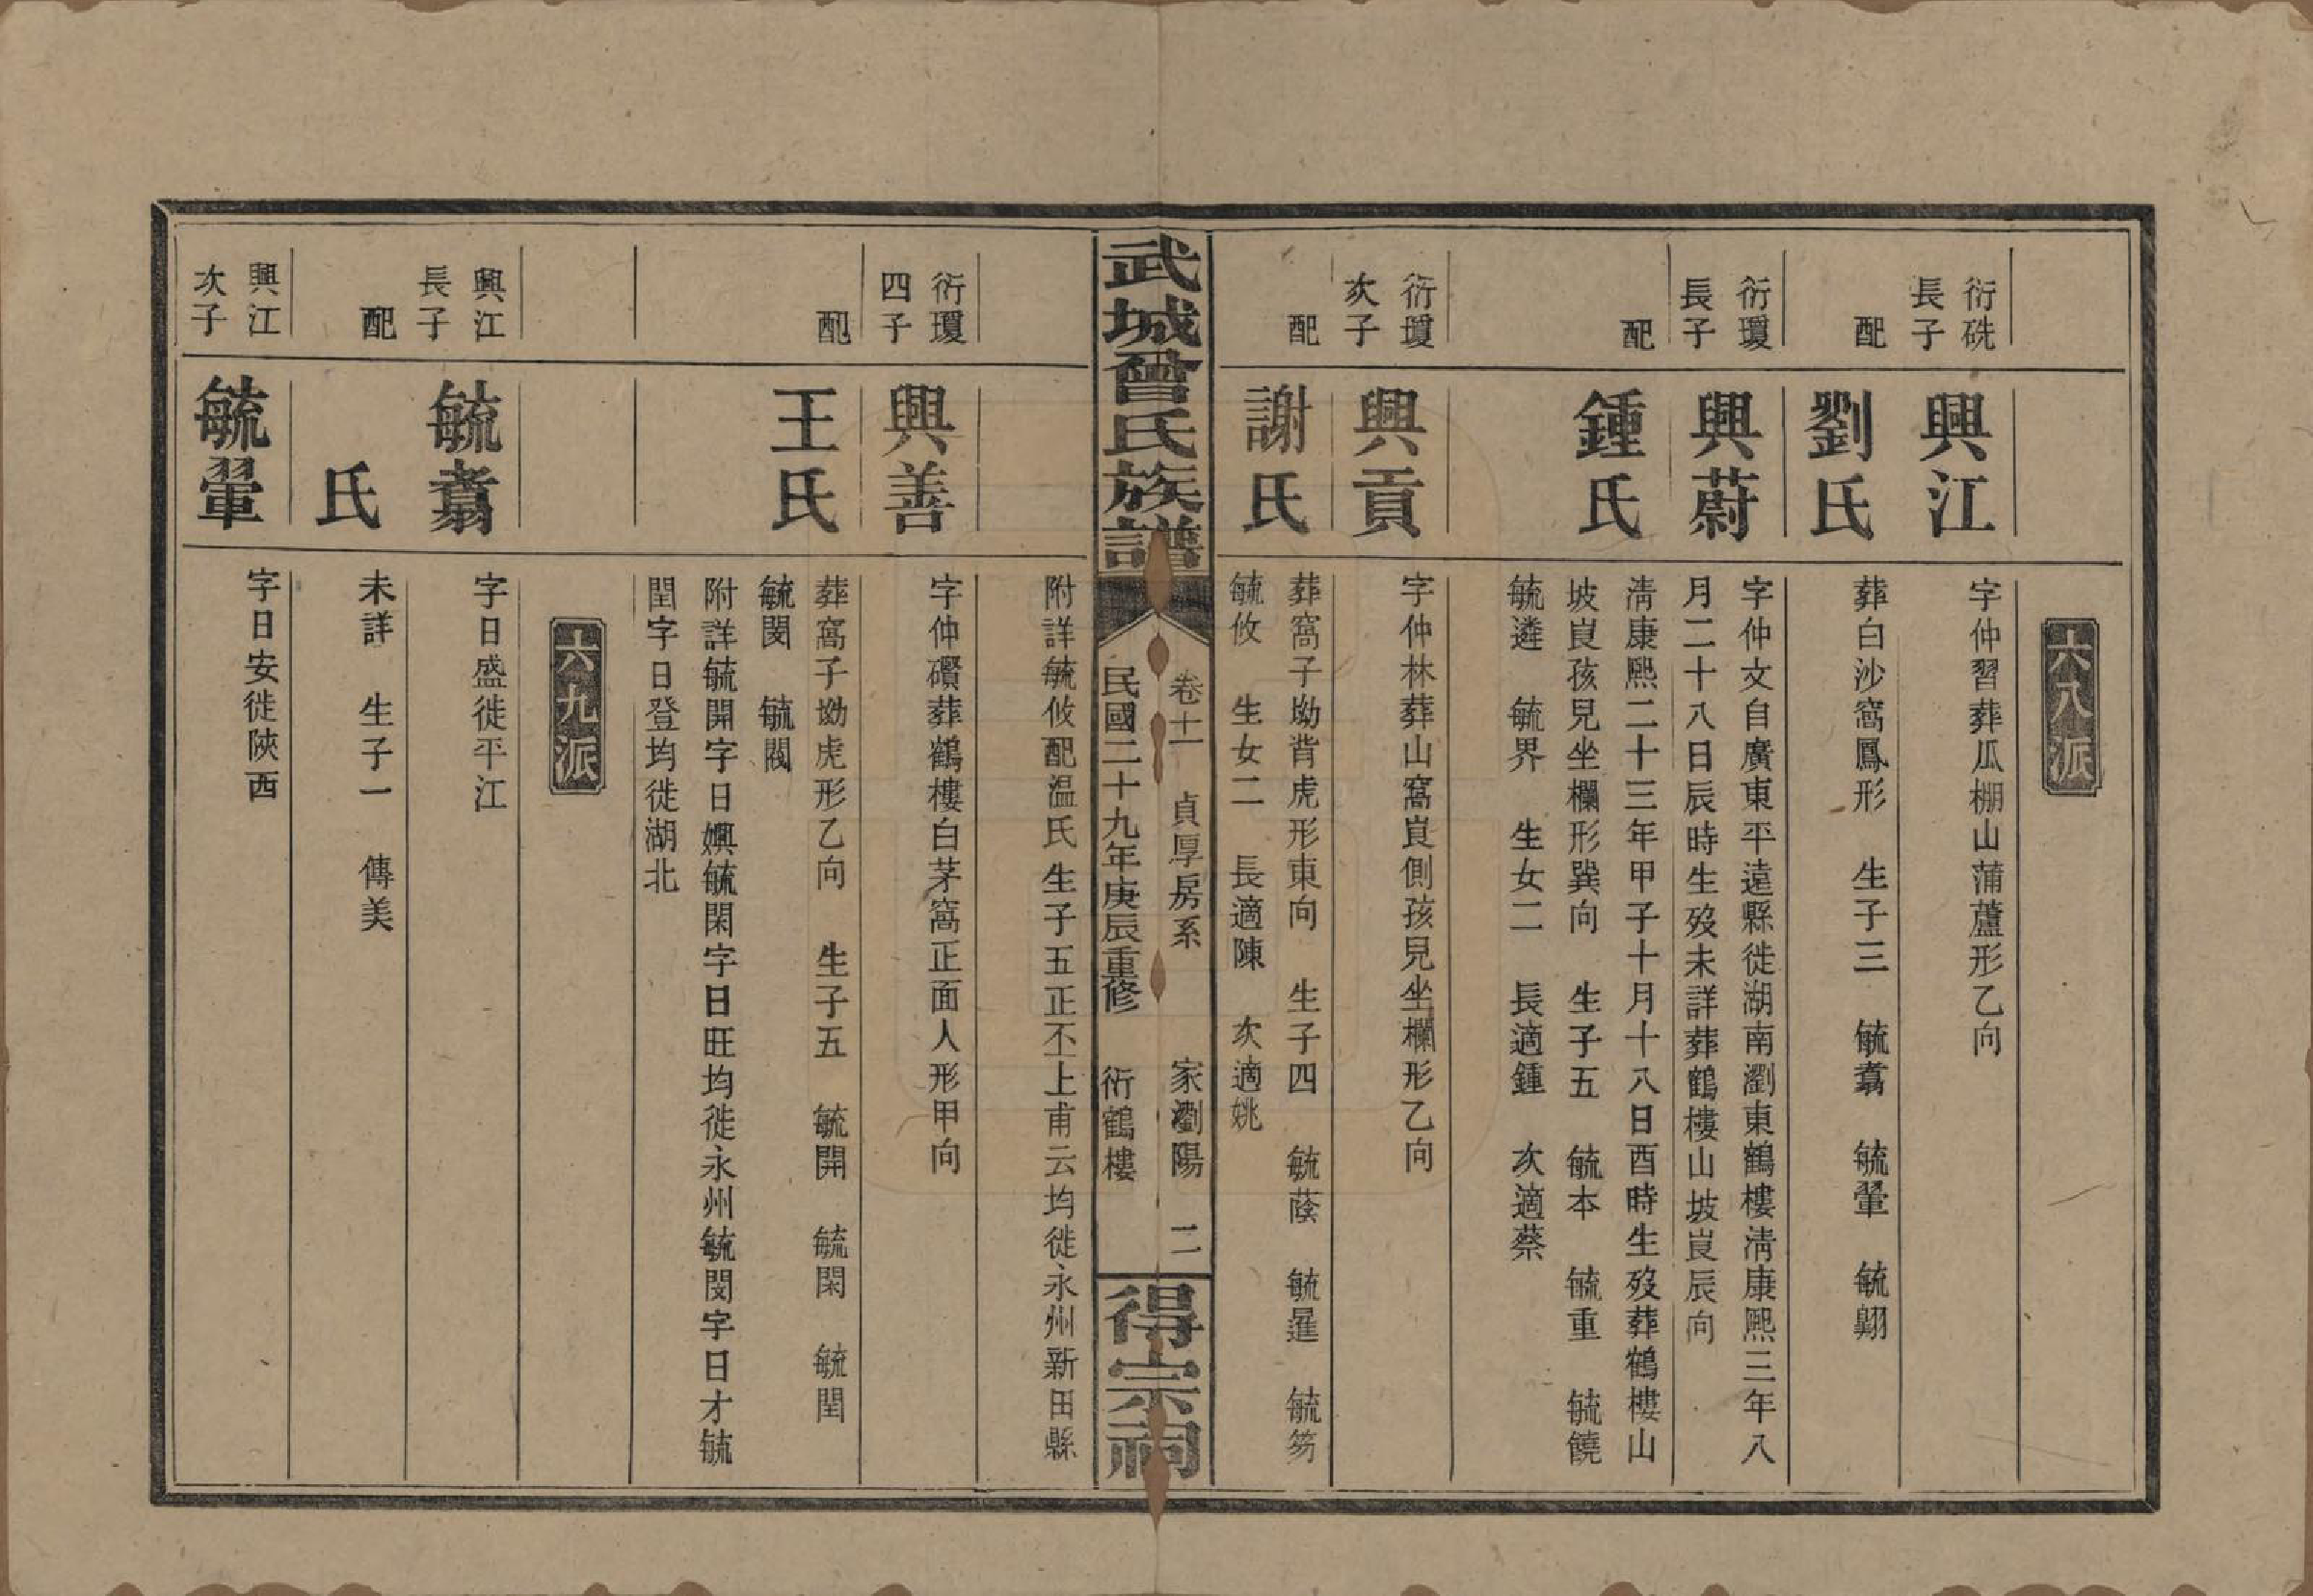 六八派
衍硃
長子
興江
字仲習葬瓜棚山蒲蘆形乙向
配
劉氏
葬白沙窩鳳形　生子三　毓翥　毓翬　毓翱
衍瓊
長子
興蔚
字仲文自廣東平遠縣徙湖南瀏東鶴樓淸康熙三年八
月二十八日辰時生歿未詳葬鶴樓山坡崀辰向
配
鍾氏
淸康熙二十三年甲子十月十八日酉時生歿葬鶴樓山
坡崀孩兒坐欄形巽向　生子五　毓本　毓重　毓饒
毓遴　毓界　生女二　長適鍾　次適蔡
衍瓊
次子
興貢
字仲林葬山窩崀側孩兒坐欄形乙向
配
謝氏
葬窩子坳背虎形東向　生子四　毓蔭　毓暹　毓笏
毓攸　生女二　長適陳　次適姚
武城曾氏族譜
卷十一　貞厚房系　家瀏陽　二
民國二十九年庚辰重修　衍鶴樓
得宗祠
附詳毓攸配温氏生子五正丕上甫云均徙永州新田縣
衍瓊
四子
興善
字仲礸葬鶴樓白茅窩正面人形甲向
配
王氏
葬窩子坳虎形乙向　生子五　毓開　毓閑　毓閏
毓閔　毓閥
附詳毓開字日嫻毓閑字日旺均徙永州毓閔字日才毓
閏字日登均徙湖北
六九派
興江
長子
毓翥
字日盛徙平江
配
氏
未詳　生子一　傳美
興江
次子
毓翬
字日安徙陝西